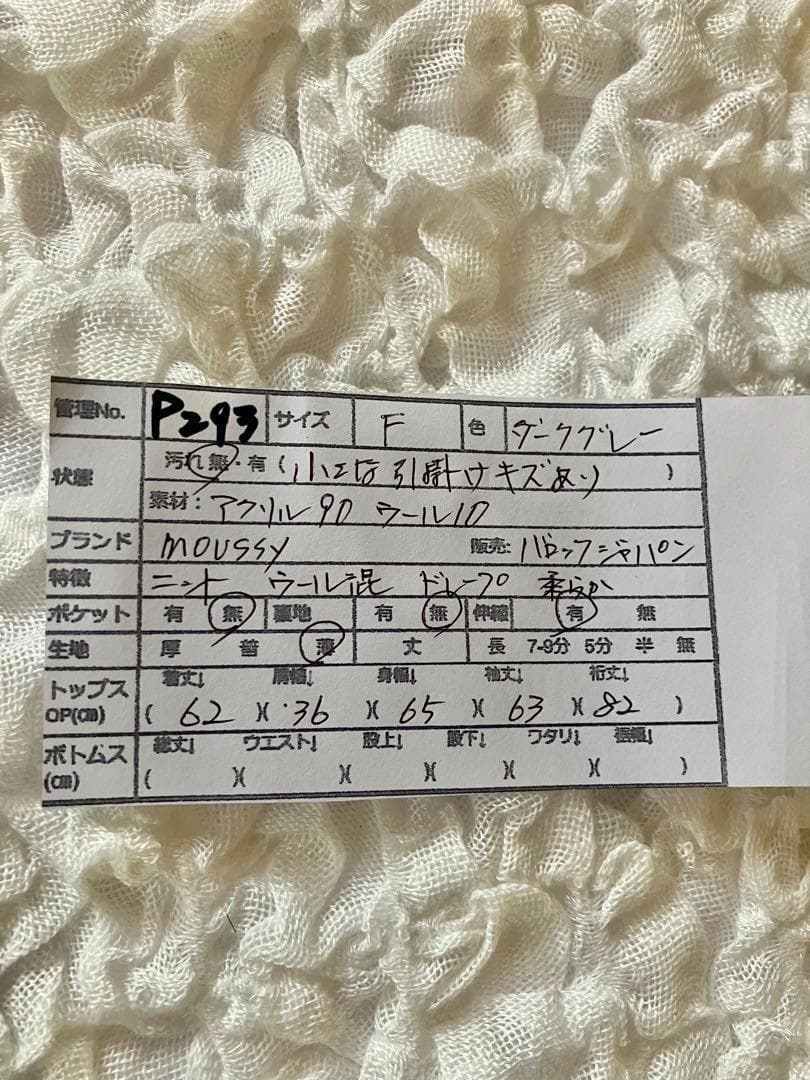 管理No. P293 サイズ F 色 ダークグレー
状態 汚れ 無・有 (小さな引掛けキズあり)
素材: アクリル90 ウール10
ブランド moussy 販売: バロックジャパン
特徴 ニット ウール混 ドレープ 柔らか
ポケット 有 無 裏地 有 無 伸縮 有 無
生地 厚 普 薄 丈 長 7-9分 5分 半 無
トップス 着丈↓ 肩幅↓ 身幅↓ 袖丈↓ 裄丈↓
OP(cm) ( 62 )( 36 )( 65 )( 63 )( 82 )
ボトムス 総丈↓ ウエスト↓ 股上↓ 股下↓ ワタリ↓ 裾幅↓
(cm) ( )( )( )( )( )( )